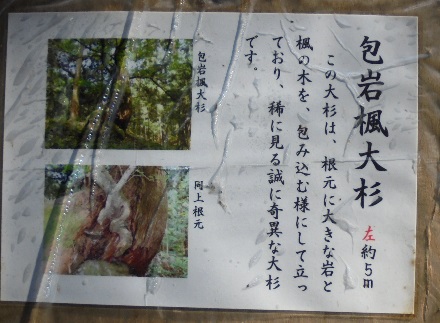 包岩楓大杉
左約5m
この大杉は、根元に大きな岩と
楓の木を、包み込む様にして立っ
ており、稀に見る誠に奇異な大杉
です。
包岩楓大杉
同上根元